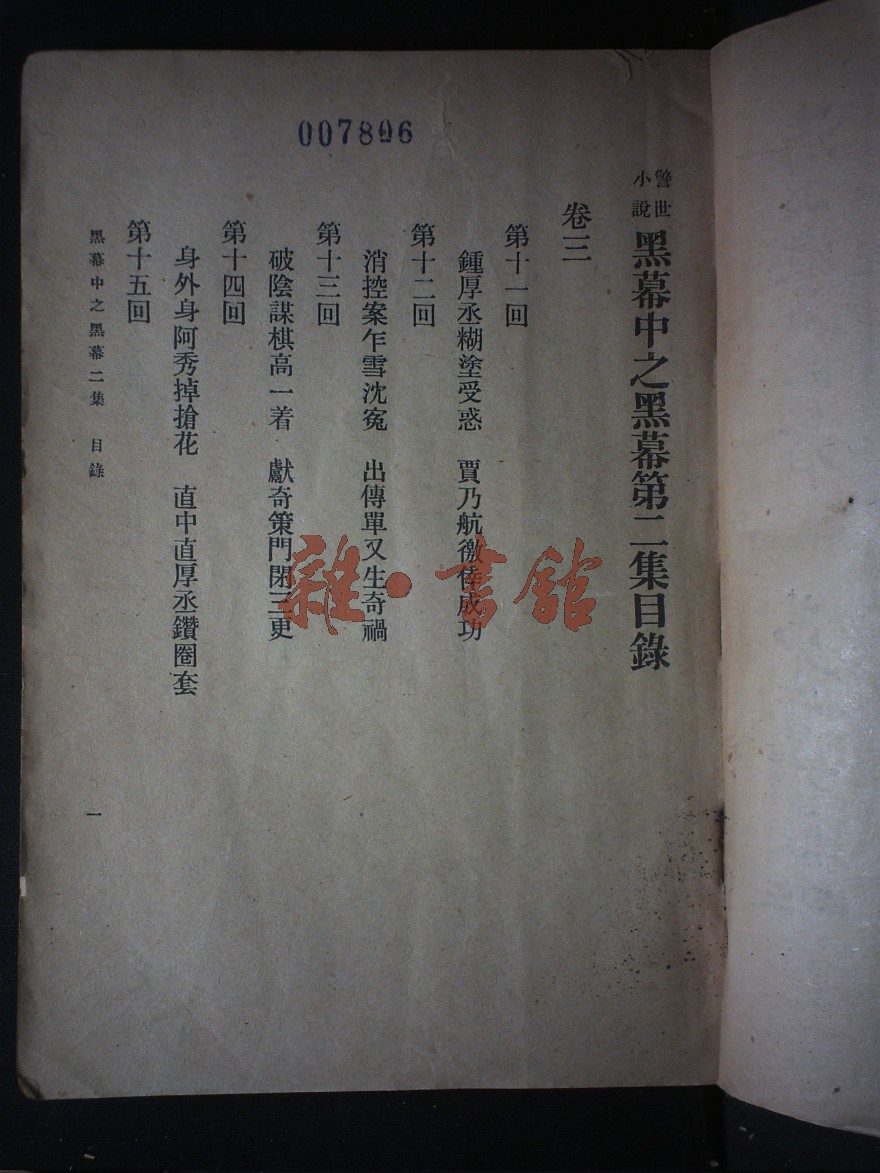 007896
警世小說 黑幕中之黑幕第二集目錄
卷三
第十一回
鍾厚丞糊塗受惑 賈乃航徼倖成功
第十二回
消控案乍雪沈冤 出傳單又生奇禍
第十三回
破陰謀棋高一着 獻奇策門閉三更
第十四回
身外身阿秀掉搶花 直中直厚丞鑽圈套
第十五回
黑幕中之黑幕二集 目錄
一
雜·書館